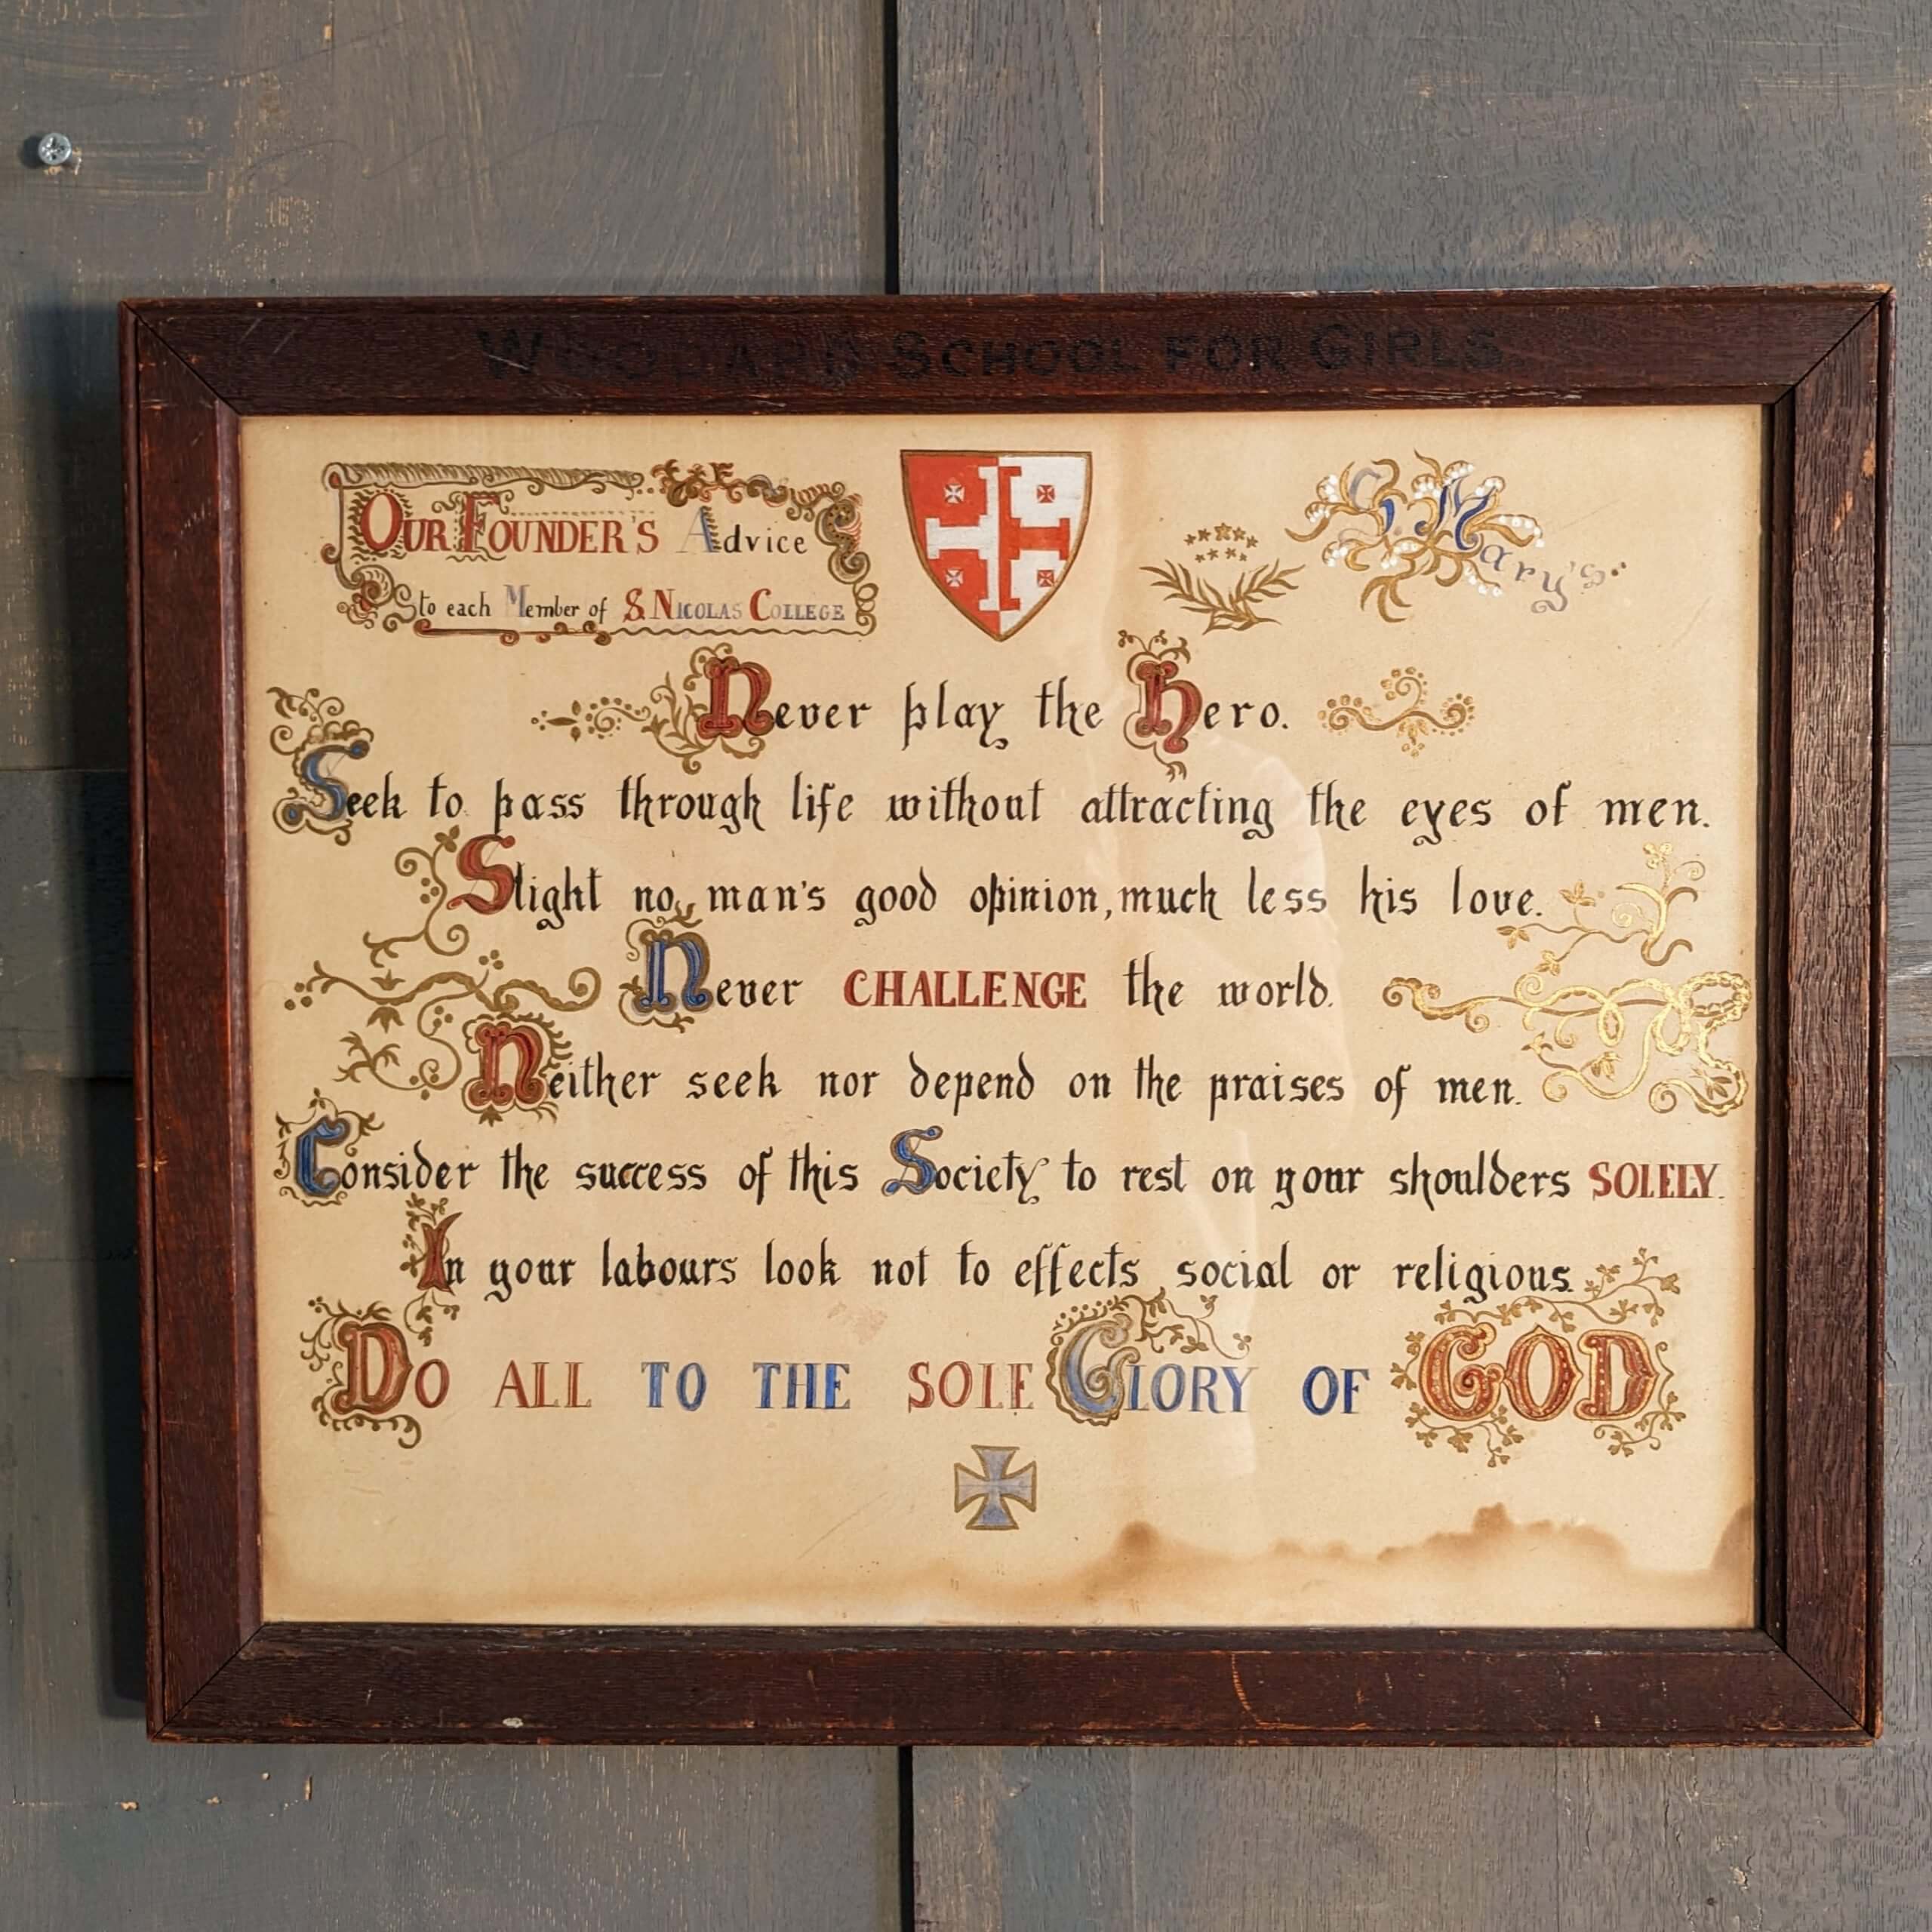 WOODARD SCHOOL FOR GIRLS.
OUR FOUNDER'S Advice
to each Member of S. NICOLAS COLLEGE
S. Mary's.
Never play the Hero.
Seek to pass through life without attracting the eyes of men.
Slight no man's good opinion, much less his love.
Never CHALLENGE the world.
Neither seek nor depend on the praises of men.
Consider the success of this Society to rest on your shoulders SOLELY.
In your labours look not to effects, social or religious.
DO ALL TO THE SOLE GLORY OF GOD